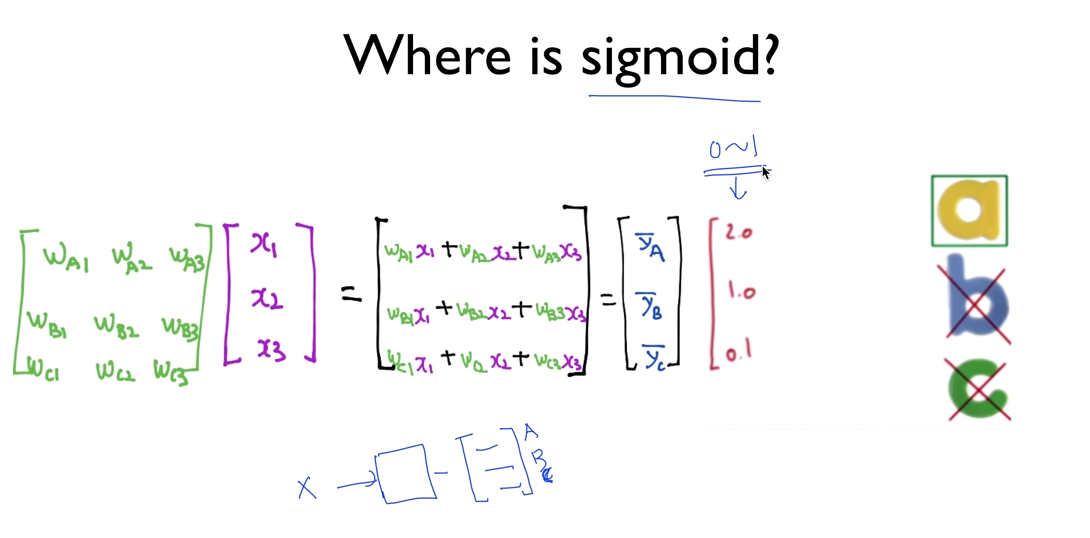 Where is sigmoid?
0~1
WA1 WA2 WA3
WB1 WB2 WB3
WC1 WC2 WC3
x1
x2
x3
=
WA1x1+WA2x2+WA3x3
WB1x1+WB2x2+WB3x3
WC1x1+WC2x2+WC3x3
=
ȳA
ȳB
ȳC
2.0
1.0
0.1
a
b
c
X
A
B
C